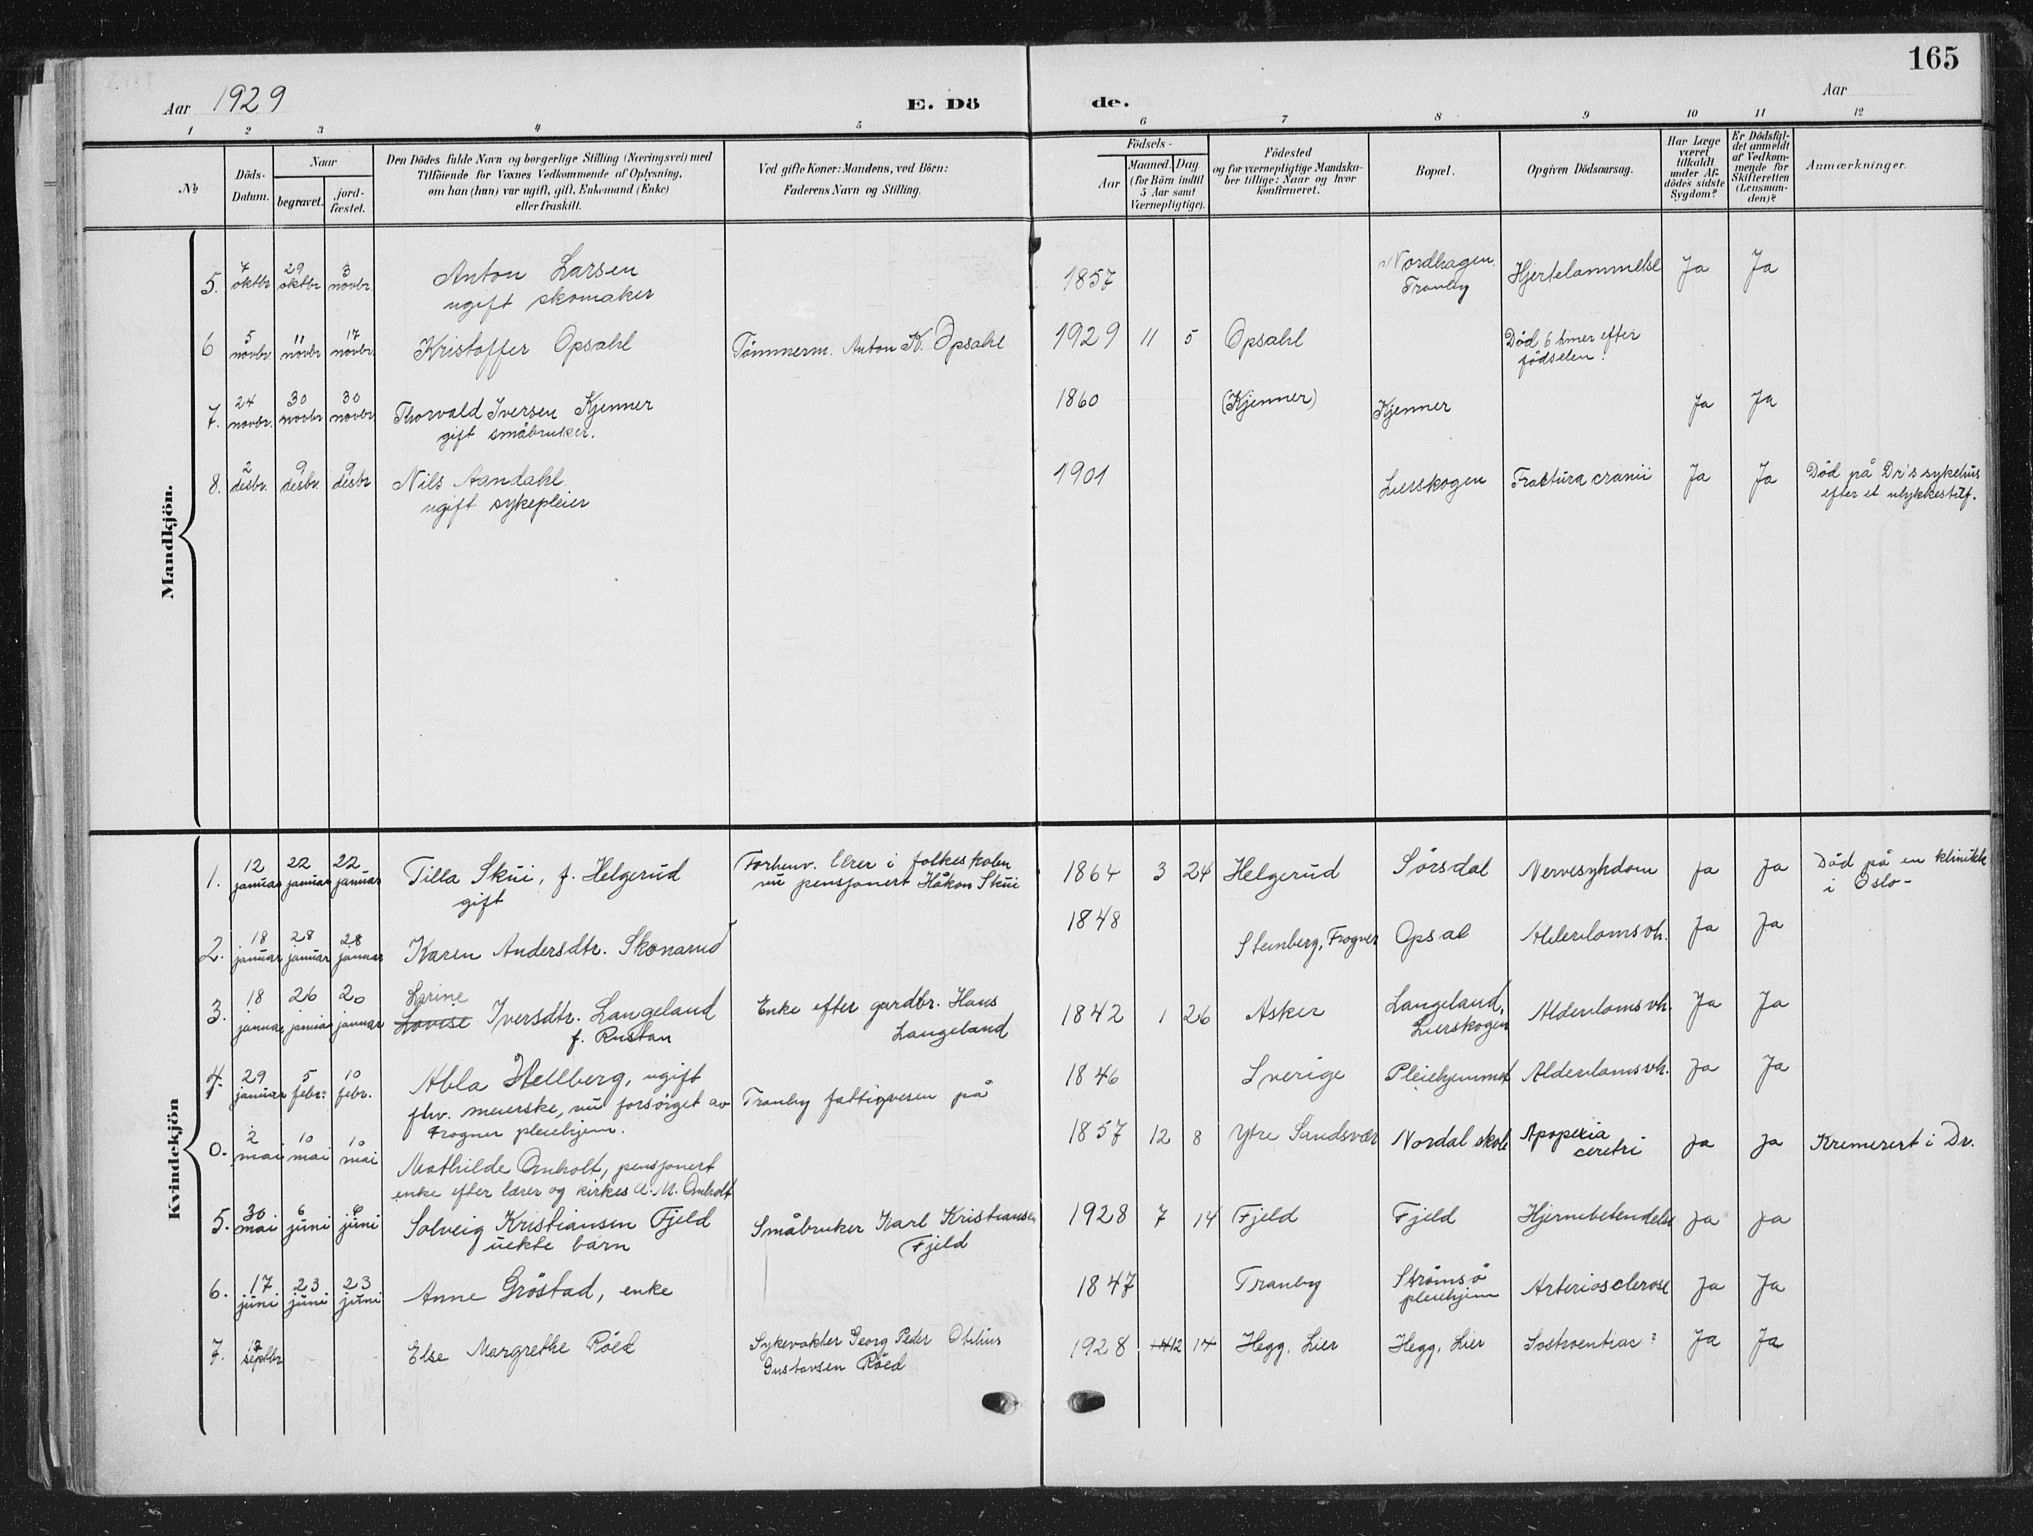 165
Aar 1929
E. Dö
de.
Aar
1 2 3 4 5 6 7 8 9 10 11 12
№
Döds-
Datum.
Naar
begravet.
jord-
fæstet.
Den Dödes fulde Navn og borgerlige Stilling (Næringsvei) med
Tilföiende for Voxnes Vedkommende af Oplysning,
om han (hun) var ugift, gift, Enkemand (Enke)
eller fraskilt.
Ved gifte Koner: Mandens, ved Börn:
Faderens Navn og Stilling.
Födsels-
Aar
Maaned. Dag
(for Börn indtil
5 Aar samt
Værnepligtige).
Födested
og for værnepligtige Mandska-
ber tillige: Naar og hvor
konfirmeret.
Bopæl.
Opgiven Dödsaarsag.
Har Læge
været
tilkaldt
under Af-
dödes sidste
Sygdom?
Er Dödsfal-
det anmeldt
af Vedkom-
mende for
Skifteretten
(Lensman-
den)?
Anmærkninger.
Mandkjön.
5. 7 oktbr 29 oktbr 3 novbr Anton Larsen 1857 Nordhagen, Hjertelammelse Ja Ja
ugift skomaker Tranby
6 5 novbr. 11 novbr 17 novbr. Kristoffer Opsahl Tömmerm. Anton K. Opsahl 1929 11 5 Opsahl Död 6 timer efter
födselen.
7. 24 novbr. 30 novbr 30 novbr. Thorvald Iversen Kjenner 1860 (Kjenner) Kjenner Ja Ja
gift småbruker.
8. 2 desbr. 9 desbr. 9 desbr Nils Aandahl 1901 Lierskogen Fractura cranii Ja Ja Död på Dr's sykehus
ugift sykepleier efter et ulykkestilf.
Kvindekjön
1. 12 januar 22 januar 22 januar Tilla Skui, f. Helgerud Forhenv. lærer i folkeskolen 1864 3 24 Helgerud Sörsdal Nervesykdom Ja Ja Död på en klinikk
gift nu pensjonert Håkon Skui i Oslo-
2. 18 januar 28 januar 28 januar Karen Andersdtr. Skonarud 1848 Steinberg, Frogner Opsal Alderdomssvh. Ja Ja
3. 18 januar 26 januar 20 januar Larine
Lovise Iversdtr. Langeland Enke efter gardbr. Hans 1842 1 26 Asker Langeland, Alderdomssvh. Ja Ja
f. Rustan Langeland Lierskogen
4. 29 januar 5 febr. 10 febr. Abla Hellberg, ugift 1846 Sverige Pleiehjemmet Alderdomssvh. Ja Ja
fhv. meierske, nu forsörget av Tranby fattigvesen på
Frogner pleiehjem.
0. 2 mai 10 mai 10 mai Mathilde Omholt, pensjonert 1857 12 8 Ytre Sandsvær Nordal skole Apopexia Ja Ja Kremerert i Dr.
enke efter lærer og kirkes. A. M. Omholt ceretri
5. 30 mai 6 juni 6 juni Solveig Kristiansen Fjeld Småbruker Karl Kristiansen 1928 7 14 Fjeld Fjeld Hjernebetendelse Ja Ja
uekte barn Fjeld
6. 17 juni 23 juni 23 juni Anne Gröstad, enke 1847 Tranby Strömsö Arteriosclerose Ja Ja
pleiehjem
7. septbr Else Margrethe Röed Sykevokter Georg Peder Otilius 1928 12 14 Hegg, Lier Hegg, Lier Ja Ja
Gustavsen Röed